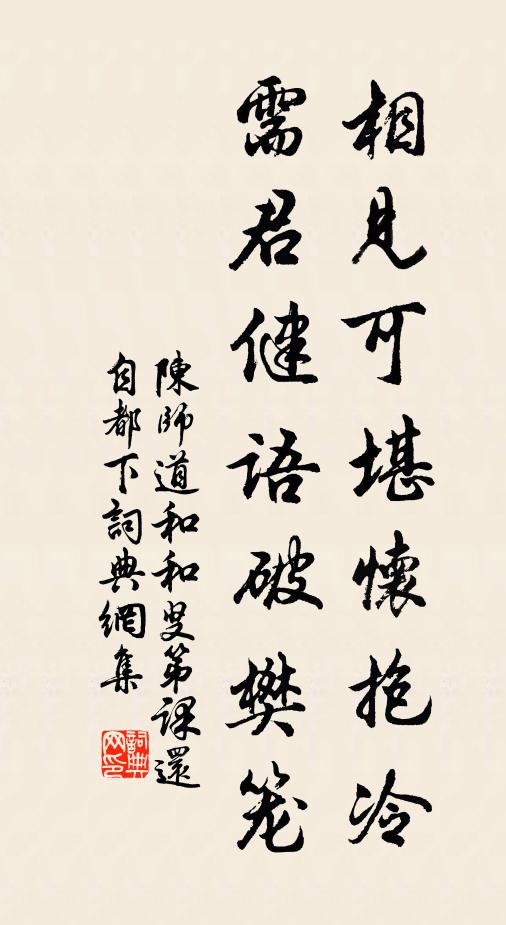 相見可堪懷抱冷
需君健語破樊笼
陳師道和和叟第課還
自都下詞典網集
詞典
网印